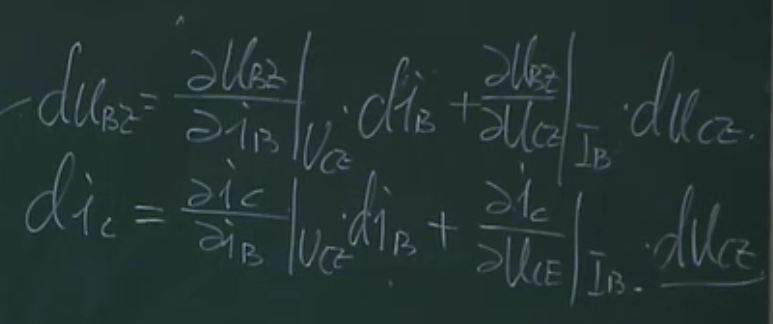 du_BE = ∂u_BE/∂i_B |_U_CE · di_B + ∂u_BE/∂u_CE |_I_B · du_CE.
di_c = ∂i_c/∂i_B |_U_CE · di_B + ∂i_c/∂u_CE |_I_B. · du_CE